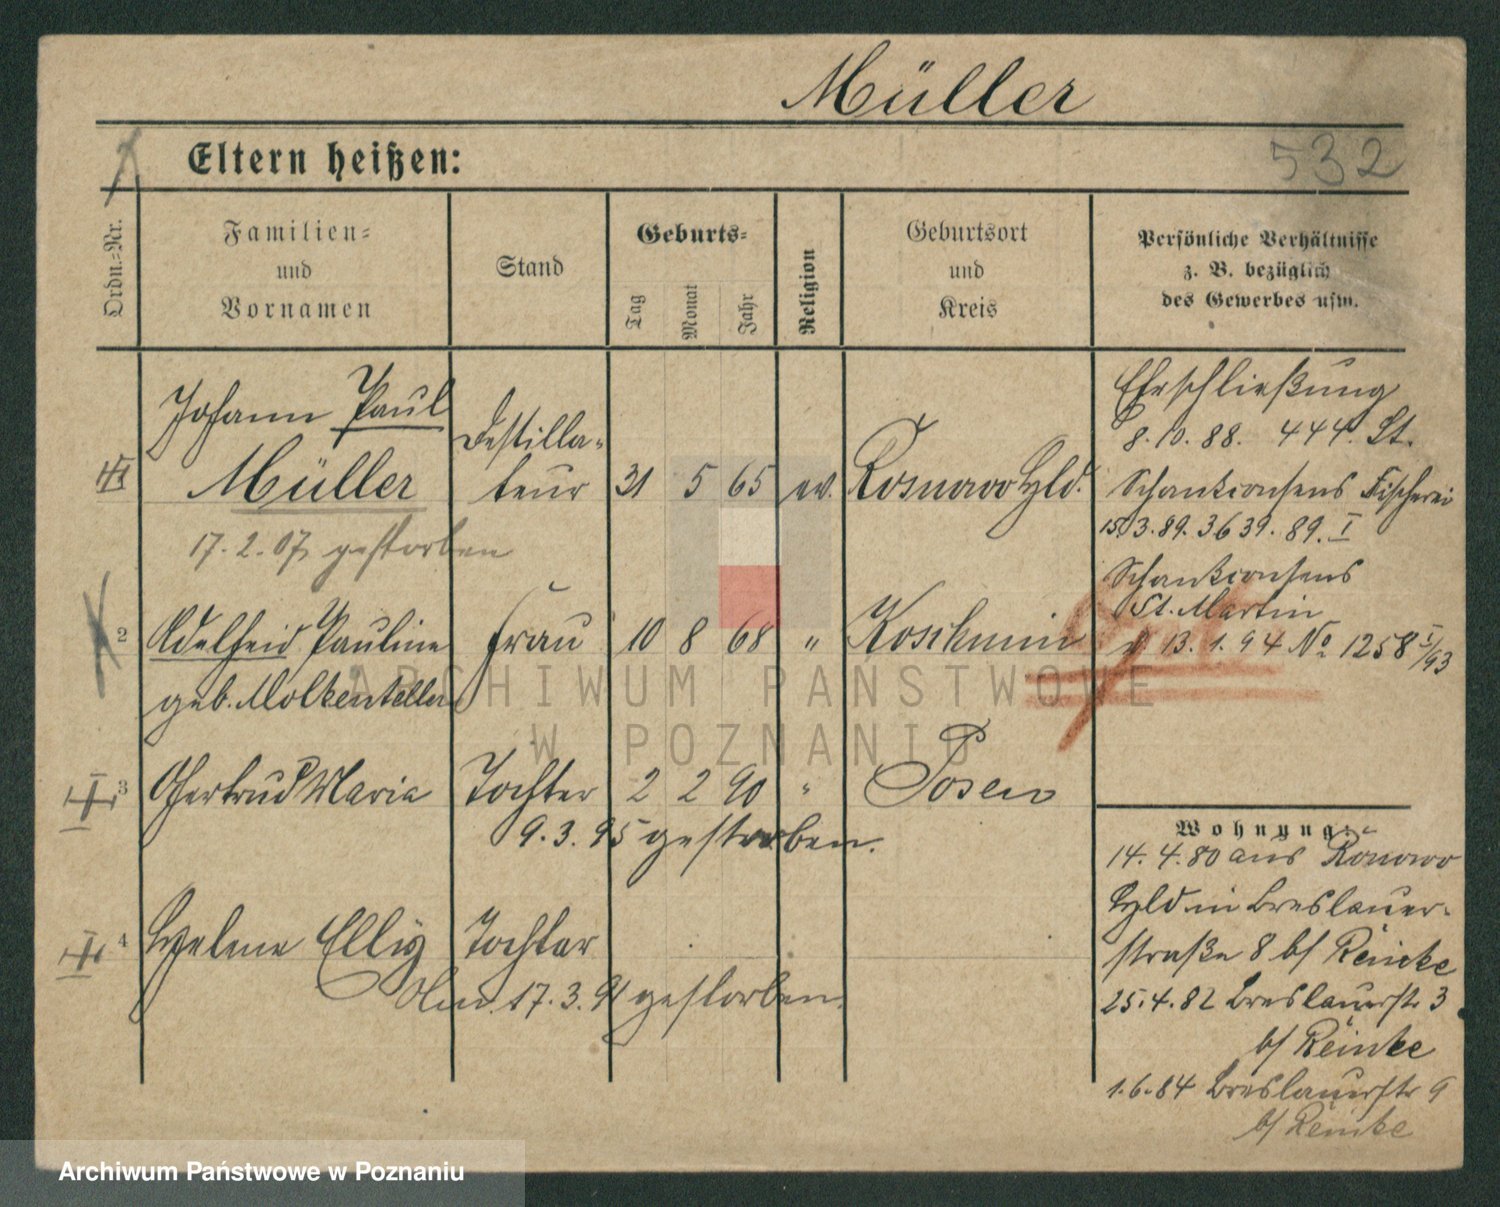 Müller
Eltern heißen:
532
Ordn.-Nr.
Familien-
und
Vornamen
Stand
Geburts-
Tag
Monat
Jahr
Religion
Geburtsort
und
Kreis
Persönliche Verhältnisse
z. B. bezüglich
des Gewerbes usw.
Johann Paul
Müller
Destilla-
teur
31 5 65 ev.
Rosnowo Hld.
17. 2. 07 gestorben
2 Adelheid Pauline
geb. Molkenteller
Frau 10 8 68 "
Koschmin
3 Gertrud Maria Tochter 2 2 90 " Posen
9. 3. 95 gestorben.
4 Helene Elly Tochter
Am 17. 3. 91 gestorben.
Eheschließung
8. 10. 88. 444. St.
Schankconsens Fischerei
15. 3. 89. 3639. 89. I
Schankconsens
St. Martin
d. 13. 1. 94 No 1258 I/93
Wohnung:
14. 4. 80 aus Ronowo
Hld in Breslauer-
straße 8 b/ Reincke
25. 4. 82 Breslauerstr 3
b/ Reinke
1. 6. 84 Breslauerstr 9
b/ Reinke
ARCHIWUM PAŃSTWOWE
W POZNANIU
Archiwum Państwowe w Poznaniu